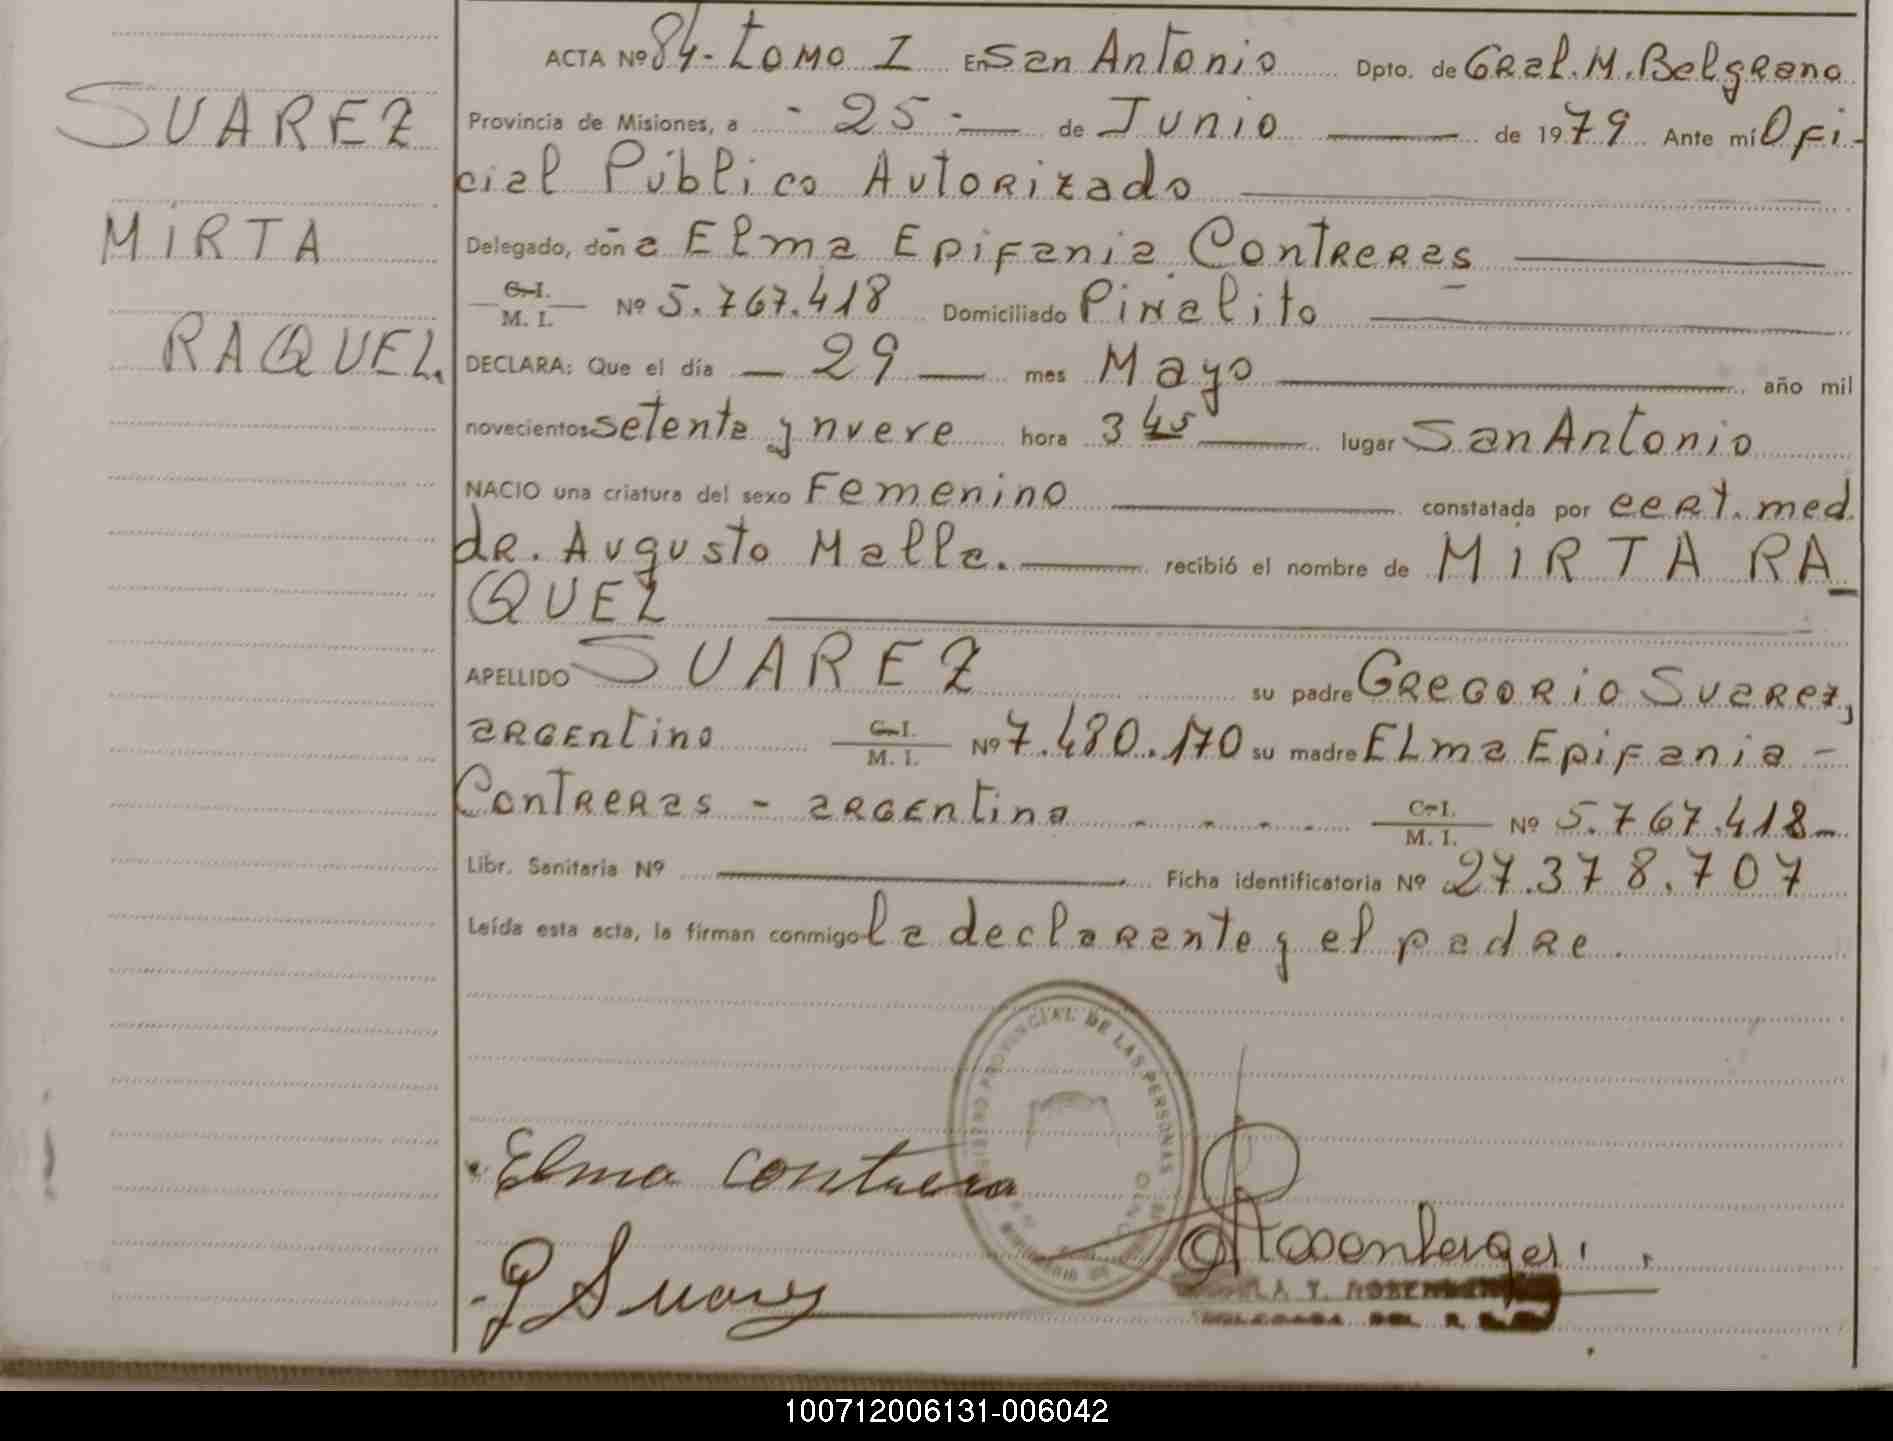 SUAREZ
MIRTA
RAQUEL.
ACTA Nº 84- tomo I En San Antonio Dpto. de Gral. M. Belgrano
Provincia de Misiones, a - 25 - de Junio de 1979 Ante mí Ofi-
cial Público Autorizado
Delegado, doña Elma Epifania Contreras
C.I. M. I. Nº 5.767.418 Domiciliado Piñalito
DECLARA: Que el día 29 mes Mayo año mil
novecientos setenta y nueve hora 3 45 lugar San Antonio
NACIO una criatura del sexo Femenino constatada por cert. med.
dr. Augusto Malla. recibió el nombre de MIRTA RA-
QUEL
APELLIDO SUAREZ su padre Gregorio Suarez,
argentino C.I. M. I. Nº 7.480.170 su madre Elma Epifania -
Contreras - argentina C.I. M. I. Nº 5.767.418
Libr. Sanitaria Nº Ficha identificatoria Nº 27.378.707
Leída esta acta, la firman conmigo la declarante y el padre.
PROVINCIAL DE LAS PERSONAS
Elma Contrera
G Suarez
Rosenberger